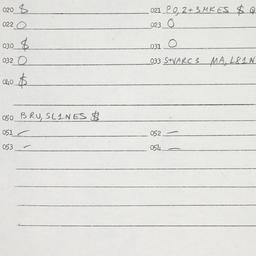 020 $ 021 PO, 2+3MKES $ Q
022 O 023 O
030 $ 031 O
032 O 033 S+VARCS MA, L81N
040 $
050 BRU, SL1NES $
051 – 052 –
053 – 054 –